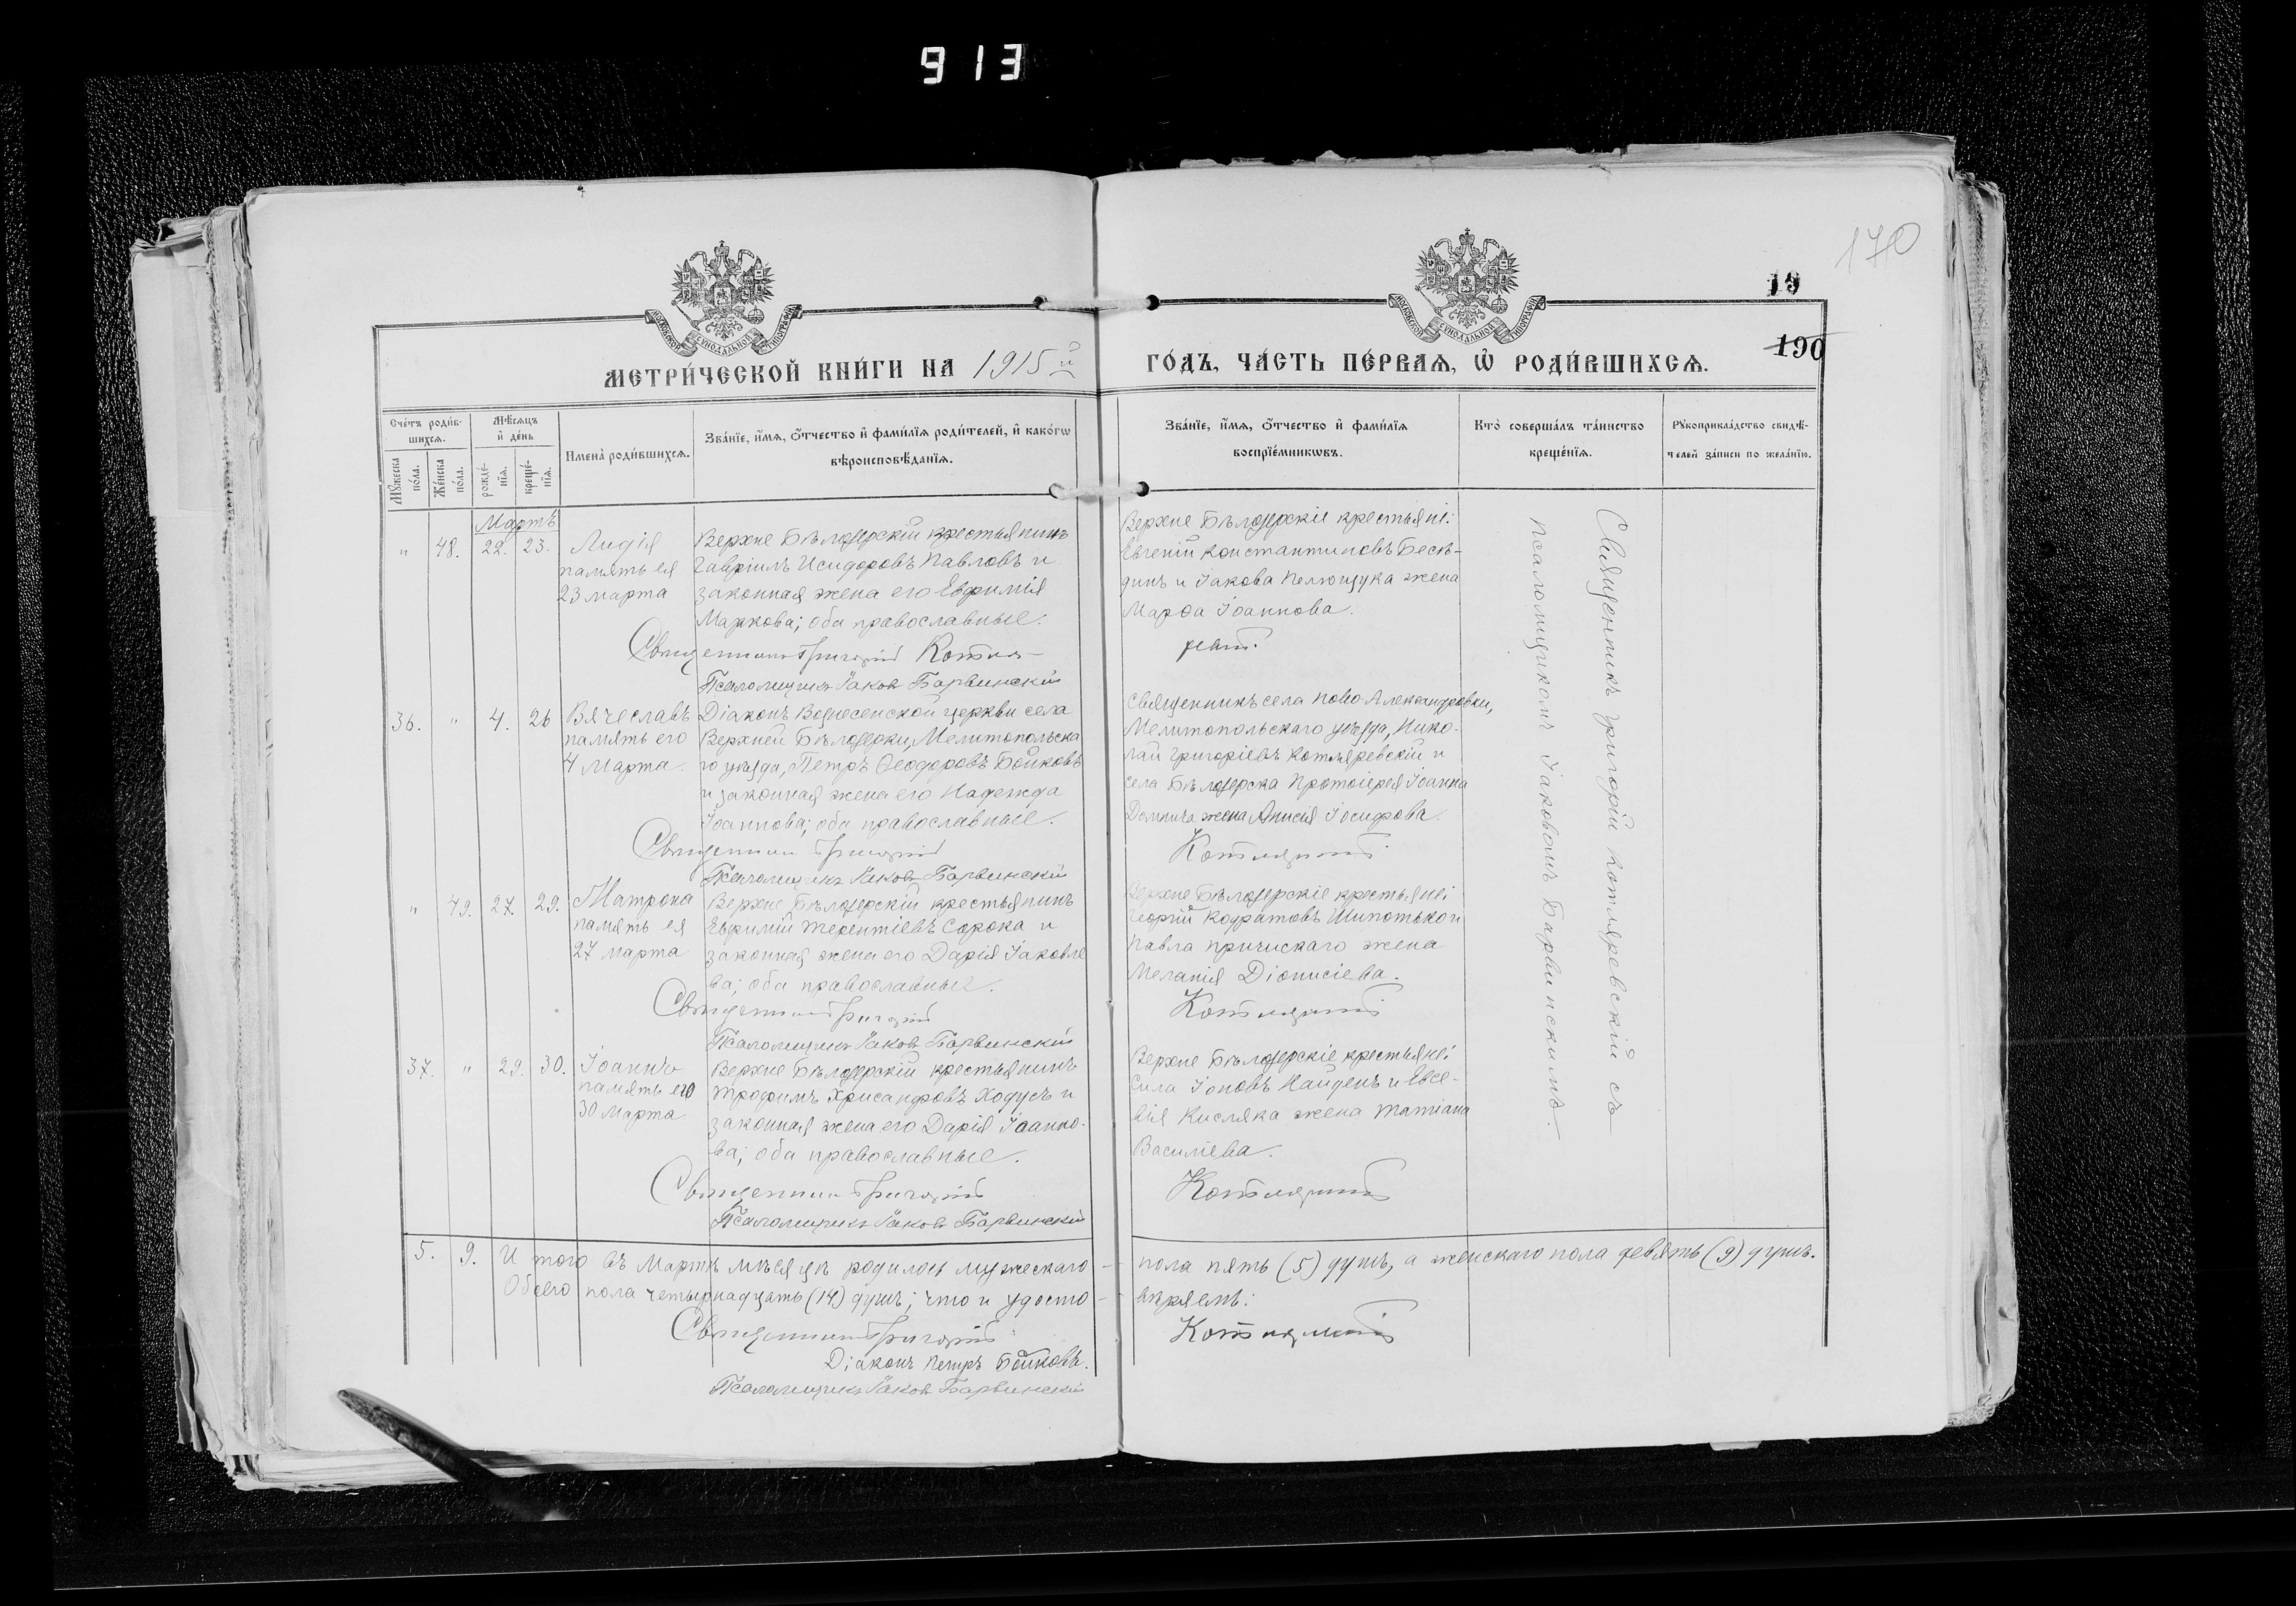 913
170
19
190
МОСКОВСКОЙ СѴНОДАЛЬНОЙ ТИПОГРАФІИ
МОСКОВСКОЙ СѴНОДАЛЬНОЙ ТИПОГРАФІИ
МЕТРИ́ЧЕСКОЙ КНИ́ГИ НА 1915й
ГО́ДЪ, ЧА́СТЬ ПЕ́РВАѦ, Ѡ҆ РОДИ́ВШИХСѦ.
Сче́тъ роди́в-
шихсѧ.
Мꙋ́жеска по́ла.
Же́нска по́ла.
Мѣ́сѧцъ
и҆ де́нь
рожде́-
нїѧ.
креще́-
нїѧ.
Имена̀ роди́вшихсѧ.
Зва́нїе, и҆́мѧ, ѻ҆́тчество и҆ фами́лїѧ роди́телей, и҆ како́гѡ
вѣроисповѣ́данїѧ.
Зва́нїе, и҆́мѧ, ѻ҆́тчество и҆ фами́лїѧ
воспрїе́мникѡвъ.
Кто̀ соверша́лъ та́инство
креще́нїѧ.
Рꙋкоприкла́дство свидѣ́-
телей за́писи по жела́нїю.
Мартъ
" 48. 22. 23.
Лидія
память ея
23 марта
Верхне Бѣлозерскій крестьянинъ
Гавріилъ Исидоровъ Павловъ и
законная жена его Евфимія
Маркова; оба православные.
Священникъ Григорій Котля-
Псаломщикъ Іаковъ Барвинскій
Верхне Бѣлозерскіе крестьяне:
Евгеній Константиновъ Бесѣ-
динъ и Іакова Пелющука жена
Марѳа Іоаннова.
36. " 4. 26
Вячеславъ
память его
4 Марта
Діаконъ Вознесенской церкви села
Верхней Бѣлозерки, Мелитопольска
го уѣзда, Петръ Ѳеодоровъ Бойковъ
и законная жена его Надежда
Іоаннова; оба православные.
Священникъ Григорій
Псаломщикъ Іаковъ Барвинскій
Священникъ села Ново-Александровки,
Мелитопольскаго уѣзда, Нико-
лай Григоріевъ Котляревскій и
села Бѣлозерска Протоіерея Іоанна
жена Анисія Іосифова.
Котляревскій
" 49. 27. 29.
Матрона
память ея
27 марта
Верхне Бѣлозерскій крестьянинъ
Евфимій Терентіевъ Сорока и
законная жена его Дарія Іаковле
ва; оба православные.
Священникъ Григорій
Псаломщикъ Іаковъ Барвинскій
Верхне Бѣлозерскіе крестьяне:
Георгій Кодратовъ Шипотько и
Павла жена
Меланія Діонисіева.
Котляревскій
37. " 29. 30.
Іоаннъ
память его
30 марта
Верхне Бѣлозерскій крестьянинъ
Трофимъ Хрисанфовъ Ходусъ и
законная жена его Дарія Іоанно-
ва; оба православные.
Священникъ Григорій
Псаломщикъ Іаковъ Барвинскій
Верхне Бѣлозерскіе крестьяне:
Сила Іоновъ Найденъ и Евсе-
вія Кисляка жена Татіана
Василіева.
Котляревскій
Священникъ Григорій Котляревскій съ
псаломщикомъ Іаковомъ Барвинскимъ.
5. 9. Итого въ Мартѣ мѣсяцѣ родилось мужескаго
пола пять (5) душъ, а женскаго пола девять (9) душъ.
Обоего пола четырнадцать (14) душъ; что и удосто-
вѣряемъ:
Священникъ Григорій
Котляревскій
Діаконъ Петръ Бойковъ.
Псаломщикъ Іаковъ Барвинскій